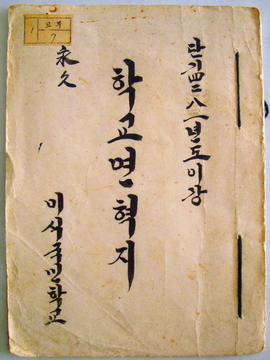 단기四二八一년도이강
학교연혁지
永久
이서국민학교
1
7